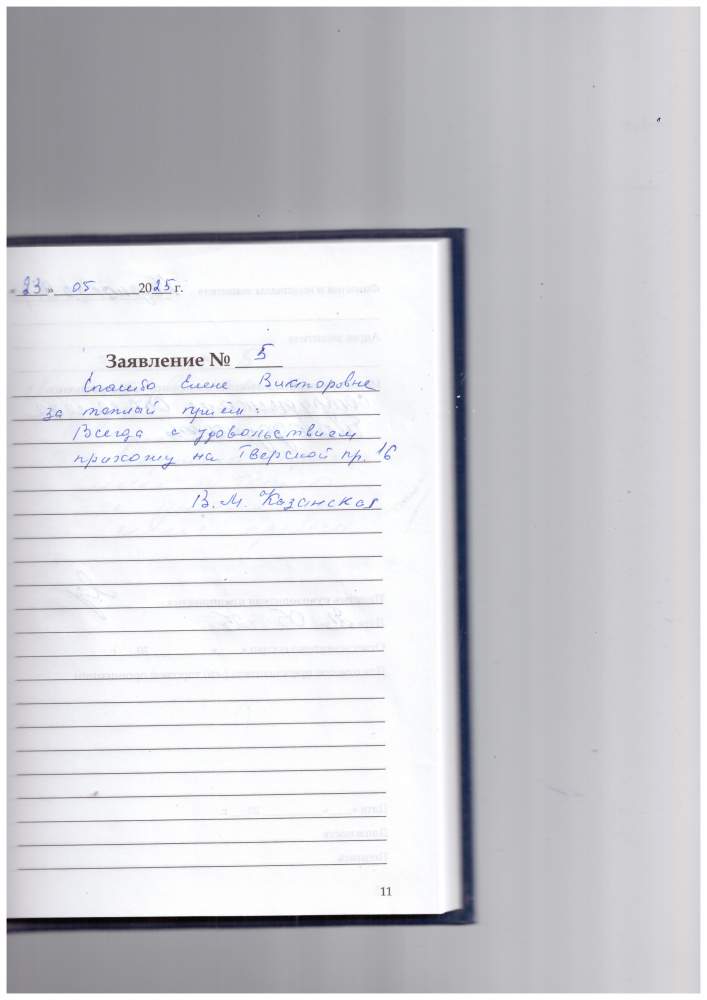 «23» 05 2025 г.
Заявление № 5
Спасибо Елене Викторовне
за теплый приём.
Всегда с удовольствием
прихожу на Тверской пр. 16
В.М. Казанская
11